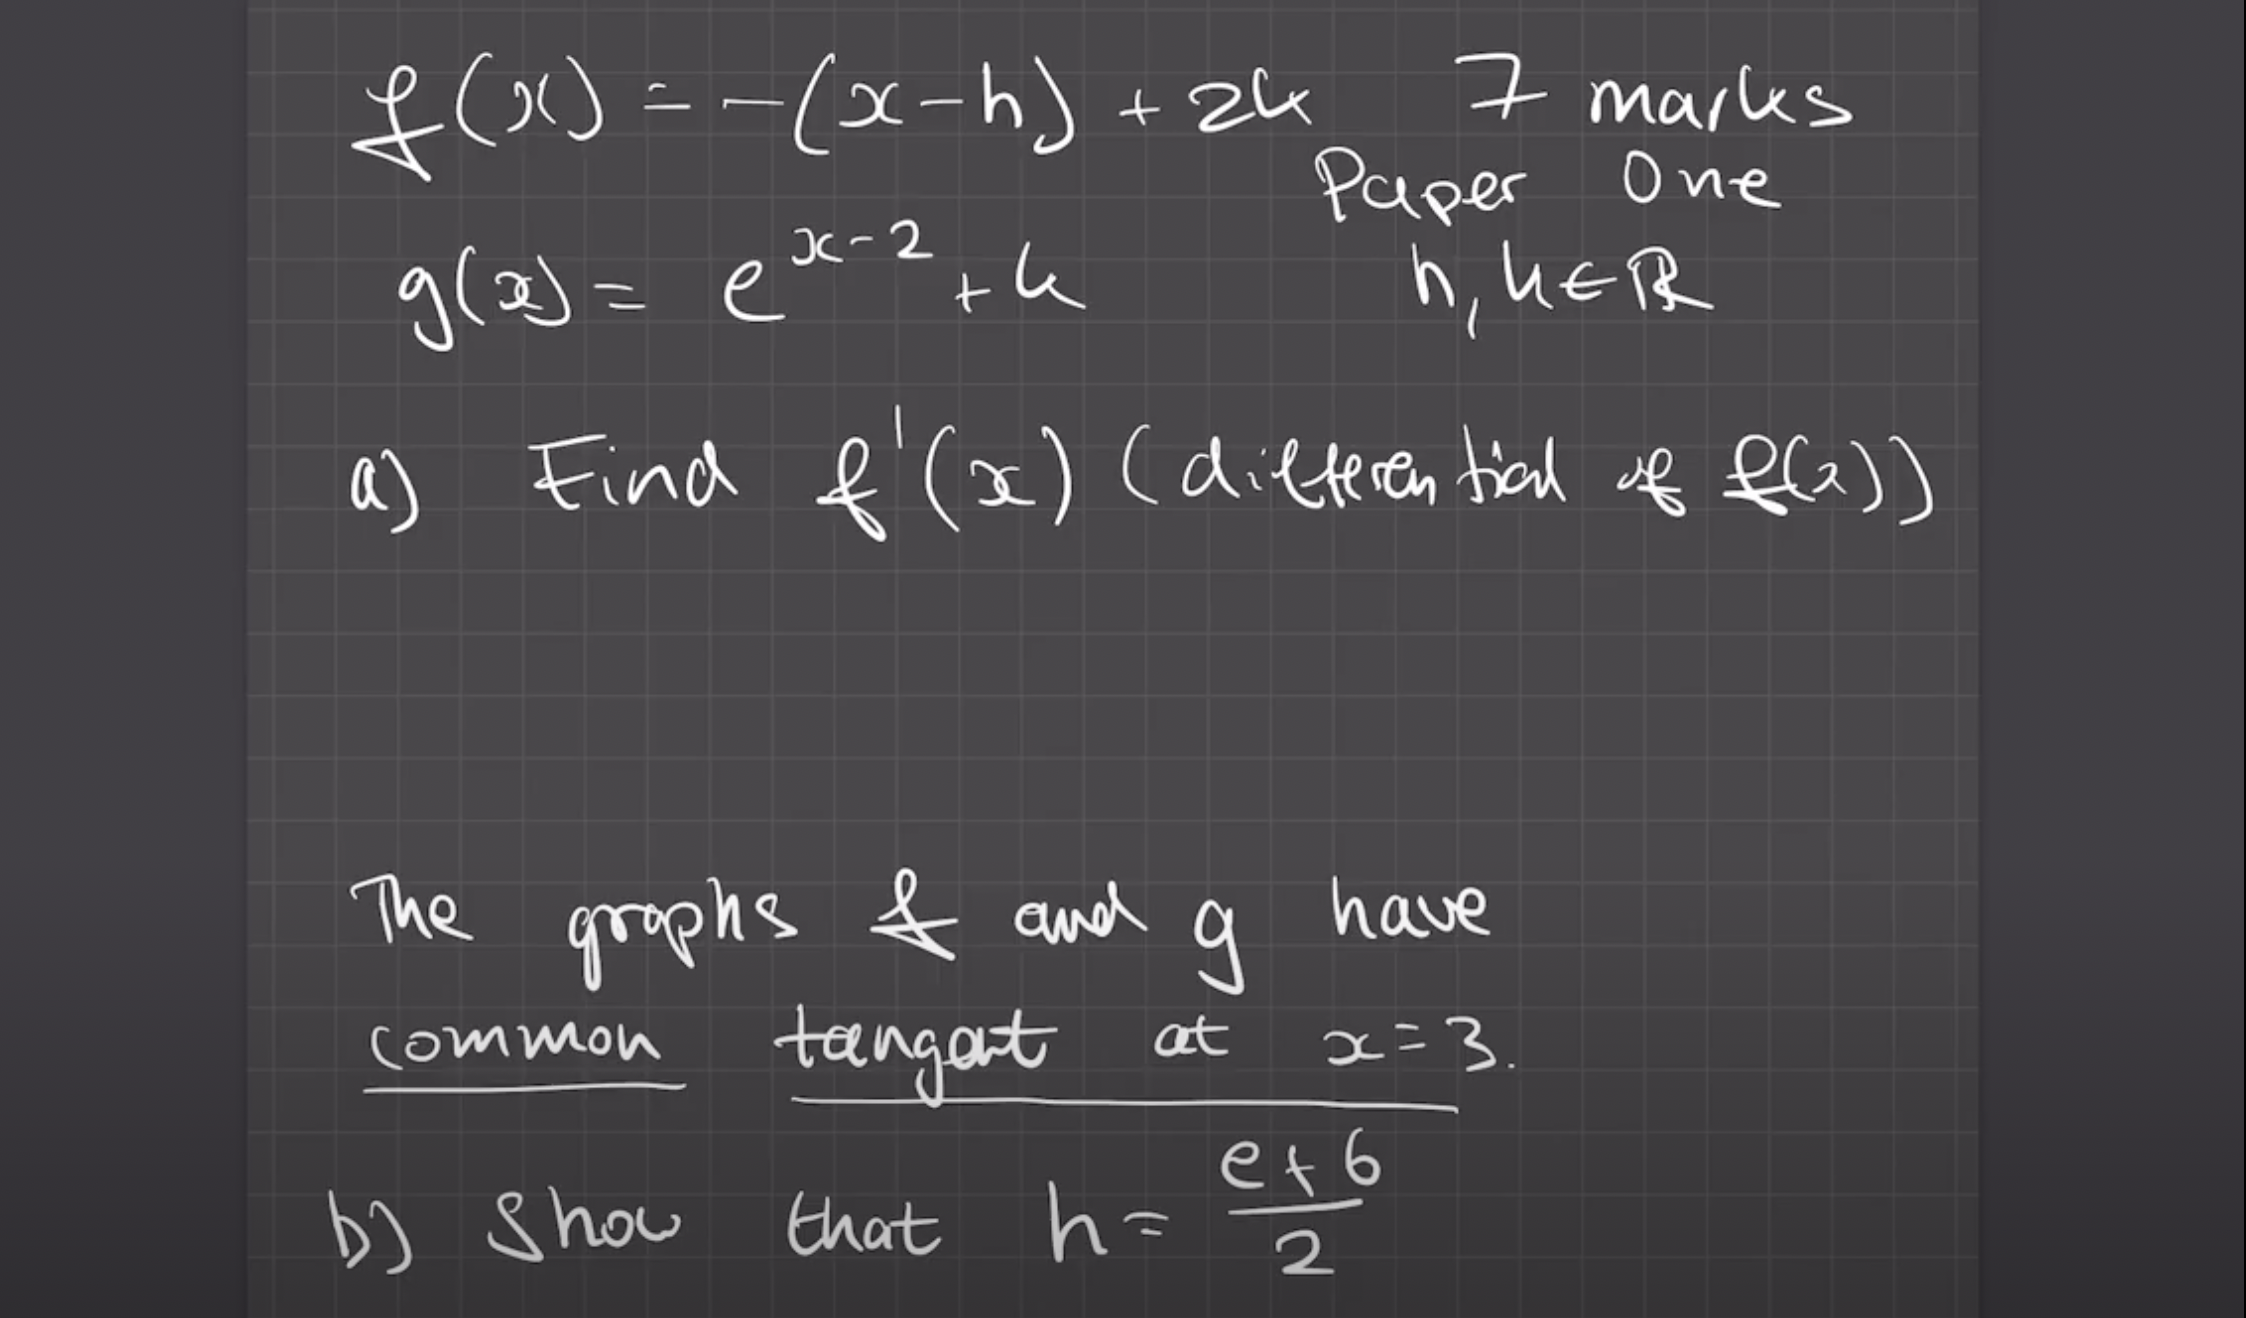 f(x) = -(x-h) + 2k 7 marks
Paper One
g(x) = e^{x-2} + k h, k ∈ ℝ
a) Find f'(x) (differential of f(x))
The graphs f and g have
common tangent at x=3.
b) Show that h = \frac{e+6}{2}